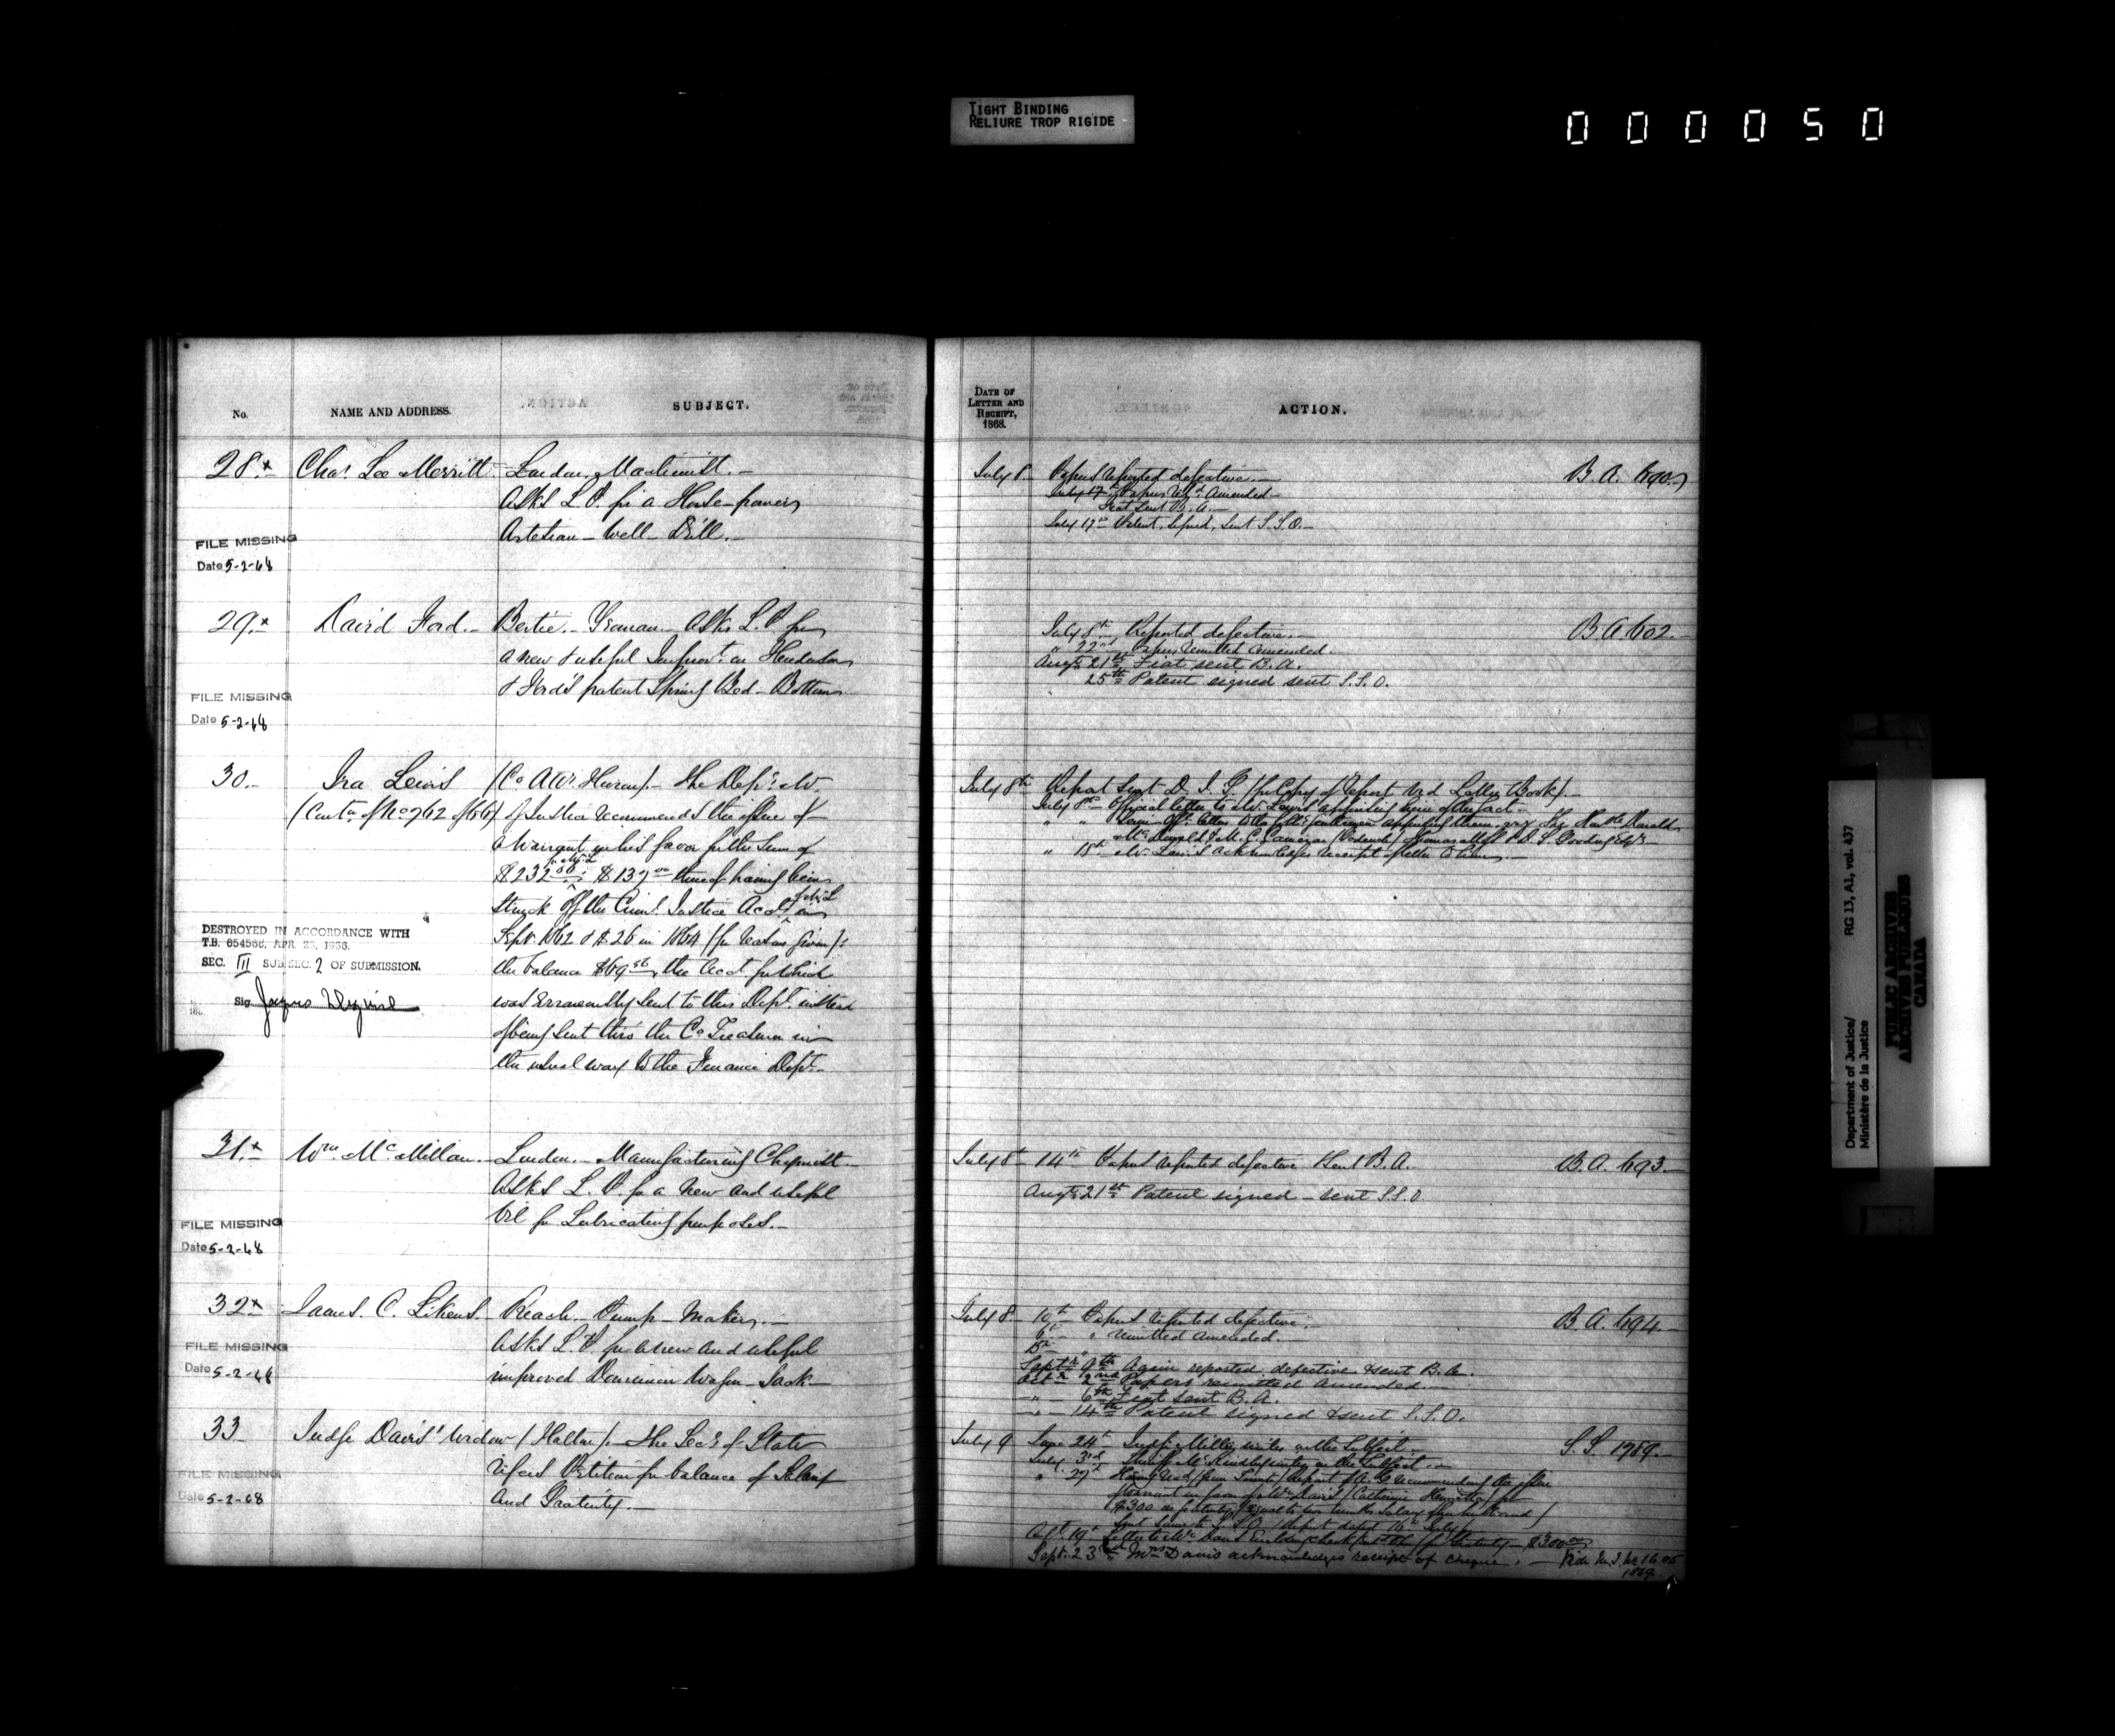 TIGHT BINDING
RELIURE TROP RIGIDE
000050
No.
NAME AND ADDRESS.
SUBJECT.
28 x Chas. Lee Merritt London, Machinist.
Asks L.P. for a Horse-power
Artesian-Well Drill.
FILE MISSING
Date 5-2-68
29 x David Ford. Bertie. Yeoman. Asks L.P. for
a new & useful Improvt. on Henderson
& Ford's patent Spring Bed-Bottom
FILE MISSING
Date 5-2-68
30. Ira Lewis (Co. Atty. Huron). The Depy. M.
(Contn. of No 762 of 66) of Justice recommends the issue of
a Warrant in his favor for the Sum of
$232 $137 thereof having been
struck off the Criml. Justice Acct. in
Sept. 1862 & $26 in 1864 (for reasons given):
the balance $69 the Acct for which
was erroneously sent to this Dept. instead
of being sent thro' the Co. Treasurer in
the usual way to the Finance Dept.
DESTROYED IN ACCORDANCE WITH
T.B. 654566, APR. 1966.
SEC. III SUB SEC. 2 OF SUBMISSION.
Sig.
31 x Wm. McMillan. London. Manufacturing Chymist.
Asks L.P. for a new and useful
Oil for Lubricating purposes.
FILE MISSING
Date 5-2-68
32 x James C. Likens. Reach. Pump-Maker.
Asks L.P. for a new and useful
improved Dominion Wagon-Jack
FILE MISSING
Date 5-2-68
33 Judge Davis' Widow (Haldn.) The Secy. of State
refers Petition for balance of Salary
and Gratuity.
FILE MISSING
Date 5-2-68
DATE OF
LETTER AND
RECEIPT,
1868.
ACTION.
July 8 Papers reported defective. B.A. 690
July 17th Papers Amended
Fiat sent B.A.
July 17th Patent signed, sent S.S.O.
July 8th Reported defective. B.A. 602.
" 22nd Papers remitted amended.
Augt. 21st Fiat sent B.A.
25th Patent signed sent S.S.O.
July 8th Report sent (for Copy of Report vid Letter Book).
July 8th Official letter to Mr. Lewis apprising him of the fact
" " letter to the gentlemen apprising them, viz
" 18th Mr. Lewis acknowledges receipt of letter to him
July 8 14th Papers reported defective & sent B.A. B.A. 693.
Augt. 21st Patent signed - sent S.S.O
July 8 10th Papers reported defective. B.A. 694.
" remitted amended.
Septr. 9th Again reported defective & sent B.A.
Octr. 2nd Papers remitted amended.
" 6th Fiat sent B.A.
" 14th Patent signed & sent S.S.O.
July 9 June 24th Judge writes on the Subject. S.S. 1789.
July 3rd Sheriff writes on the Subject
" 27th recommending the issue
of warrant in favor of Mrs. Davis (Catherine
$300 as gratuity (equal to two months salary of her husband)
19th Letter to Mrs. Davis $300
Sept. 23rd Mrs Davis acknowledges receipt of cheque.
1869
Department of Justice/
Ministère de la Justice
RG 13, A1, vol. 437
PUBLIC ARCHIVES
ARCHIVES PUBLIQUES
CANADA